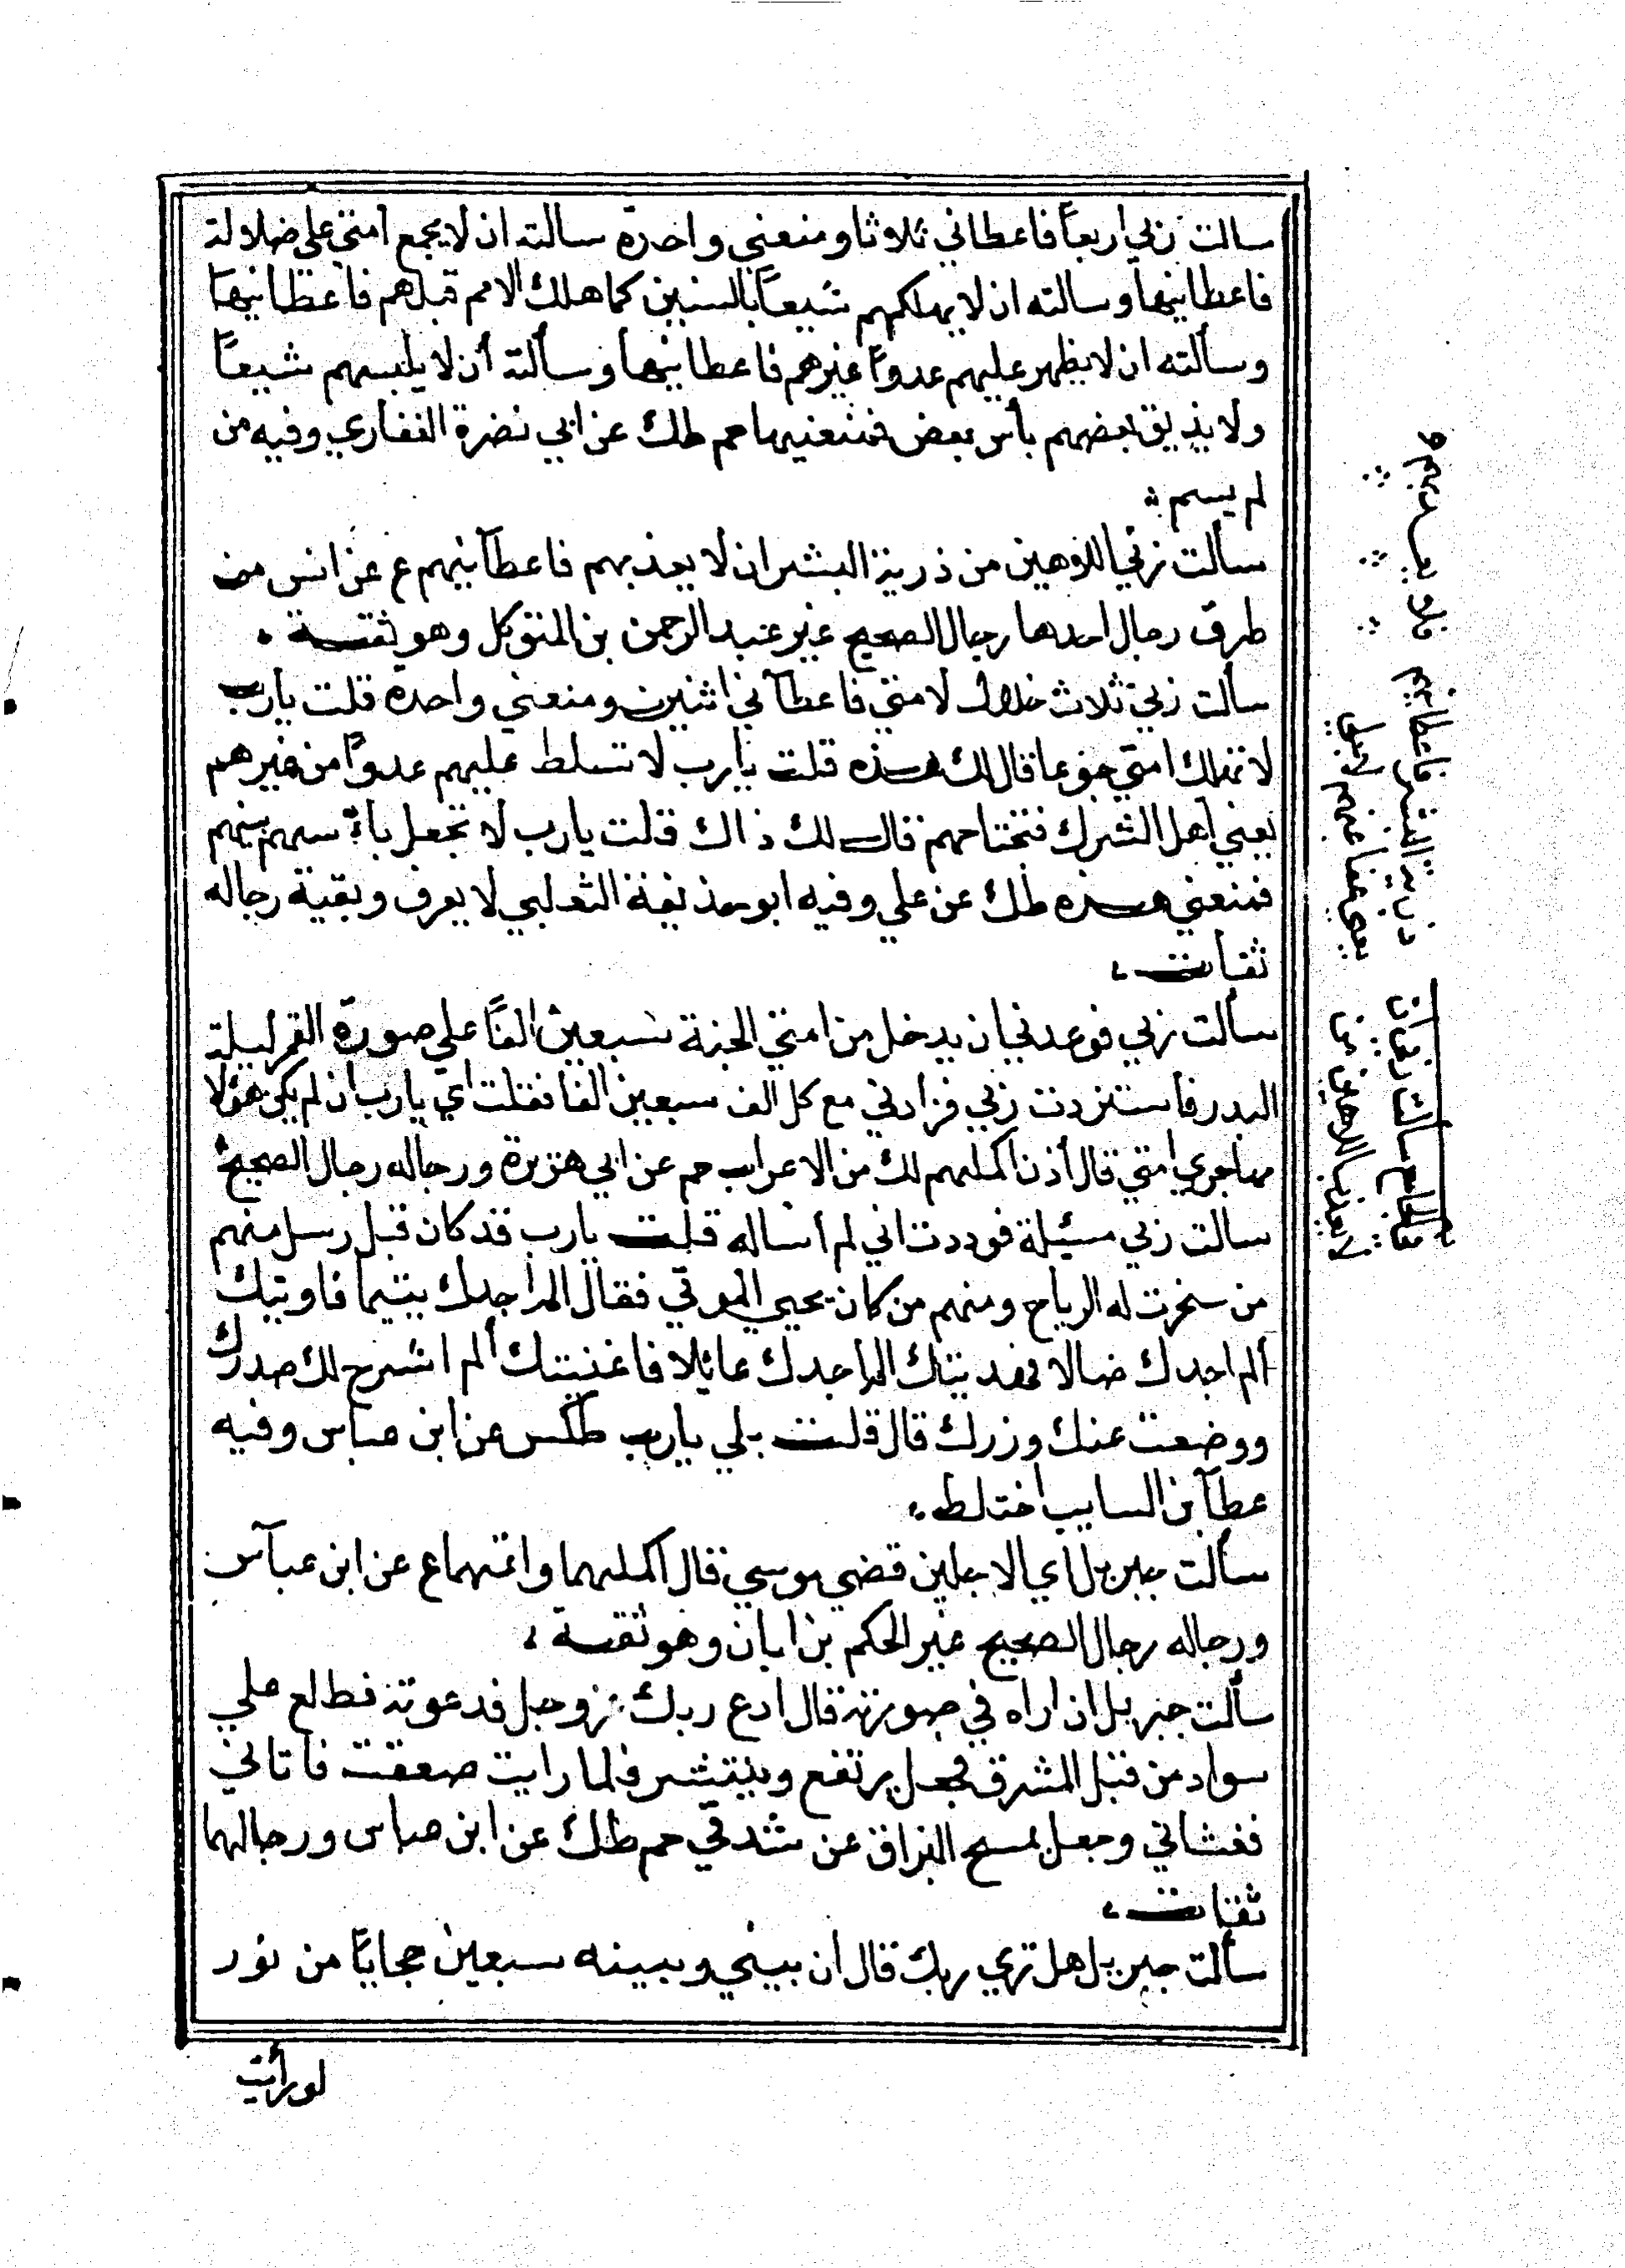 سالت ربي اربعاً فاعطاني ثلاثا ومنعني واحدة سالته ان لا يجمع امتي علي ضلالة
فاعطانيها وسالته ان لا يهلكهم شيعاً بالسنين كما هلك الامم قبلهم فاعطانيها
وسألته ان لا يظهر عليهم عدواً غيرهم فاعطانيها وسألته أن لا يلبسهم شيعاً
ولا يذيق بعضهم بأس بعض فمنعنيها حم طك عن ابي نضرة الغفاري وفيه من
لم يسم
سألت ربي اللاهين من ذرية البشر ان لا يعذبهم فاعطآنيهم ع عن انس من
طرق رجال احدها رجال الصحيح غير عبد الرحمن بن المتوكل وهو ثقة
سألت ربي ثلاث خلال لامتي فاعطآني اثنين ومنعني واحدة قلت يارب
لا تهلك امتي جوعا قال لك هذه قلت يارب لا تسلط عليهم عدواً من غيرهم
يعني اهل الشرك فتجتاحهم قال لك ذاك قلت يارب لا تجعل بأسهم بينهم
فمنعني هذه طك عن علي وفيه ابو حذيفة الثعلبي لا يعرف وبقية رجاله
ثقات
سألت ربي فوعدني ان يدخل من امتي الجنة سبعين الفاً علي صورة القمر ليلة
البدر فأستزدت ربي فزادني مع كل الف سبعين الفا فقلت اي يارب ان لم يكن هؤلا
مهاجري امتي قال أذن اكملهم لك من الاعراب حم عن ابي هريرة ورجاله رجال الصحيح
سالت ربي مسئلة فوددت اني لم أساله قلت يارب قد كان قبل رسل منهم
من سخرت له الرياح ومنهم من كان يحيي الموتي فقال الم اجدك يتيما فاويتك
ألم اجدك ضالا فهديتك الم اجدك عائلا فاغنيتك ألم اشرح لك صدرك
ووضعت عنك وزرك قال قلت بلي يارب طكس عن ابن عباس وفيه
عطآ بن السايب اختلط
سألت جبريل اي الاجلين قضي موسي قال اكملهما واتمهما ع عن ابن عبآس
ورجاله رجال الصحيح غير الحكم بن ابان وهو ثقة
سألت جبريل ان اراه في صورته قال ادع ربك عز وجل فدعوته فطلع علي
سواد من قبل المشرق فجعل يرتفع وينتشر فلما رايت صعقت فأتاني
فغشاني وجعل يمسح البزاق عن شدقي حم طك عن ابن عباس ورجالهما
ثقات
سألت جبريل هل تري ربك قال ان بيني وبينه سبعين حجاباً من نور
لو رأيت
سألت ربي ان
لا يعذب اللاهين من
ذرية البشر فاعطانيهم